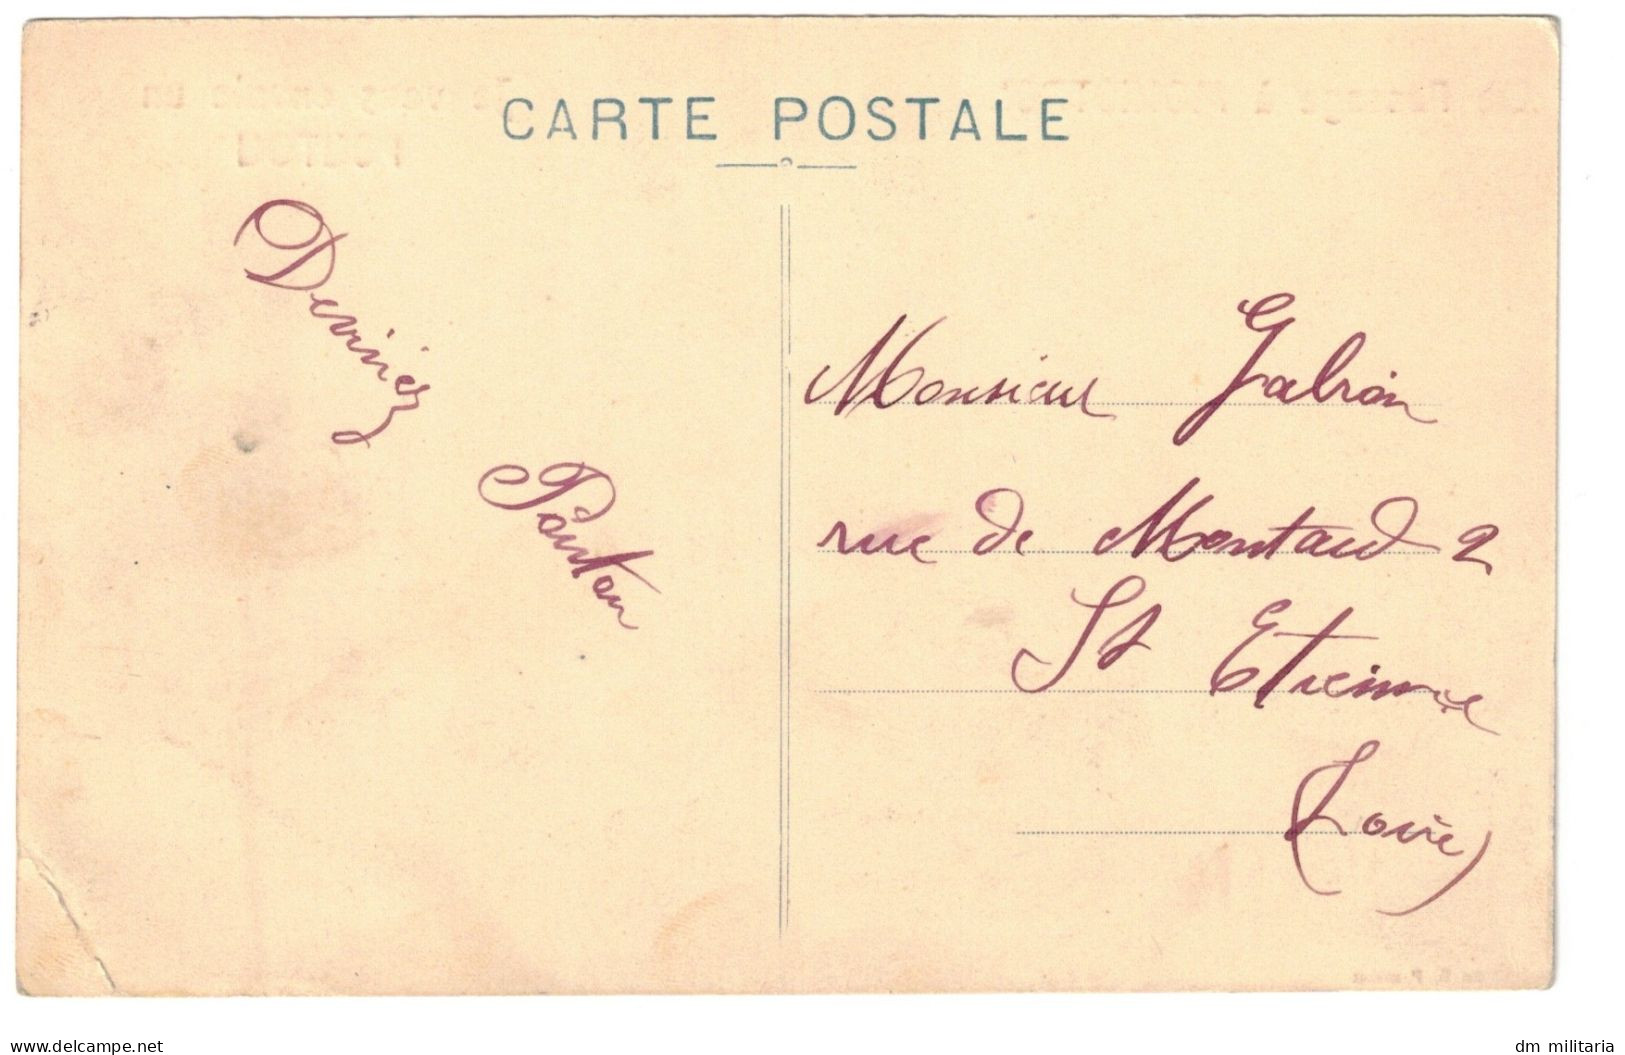 CARTE POSTALE
Devinez
Pouton
Monsieur Galron
rue de Montaud 2
St Etienne
(Loire)
www.delcampe.net
dm militaria